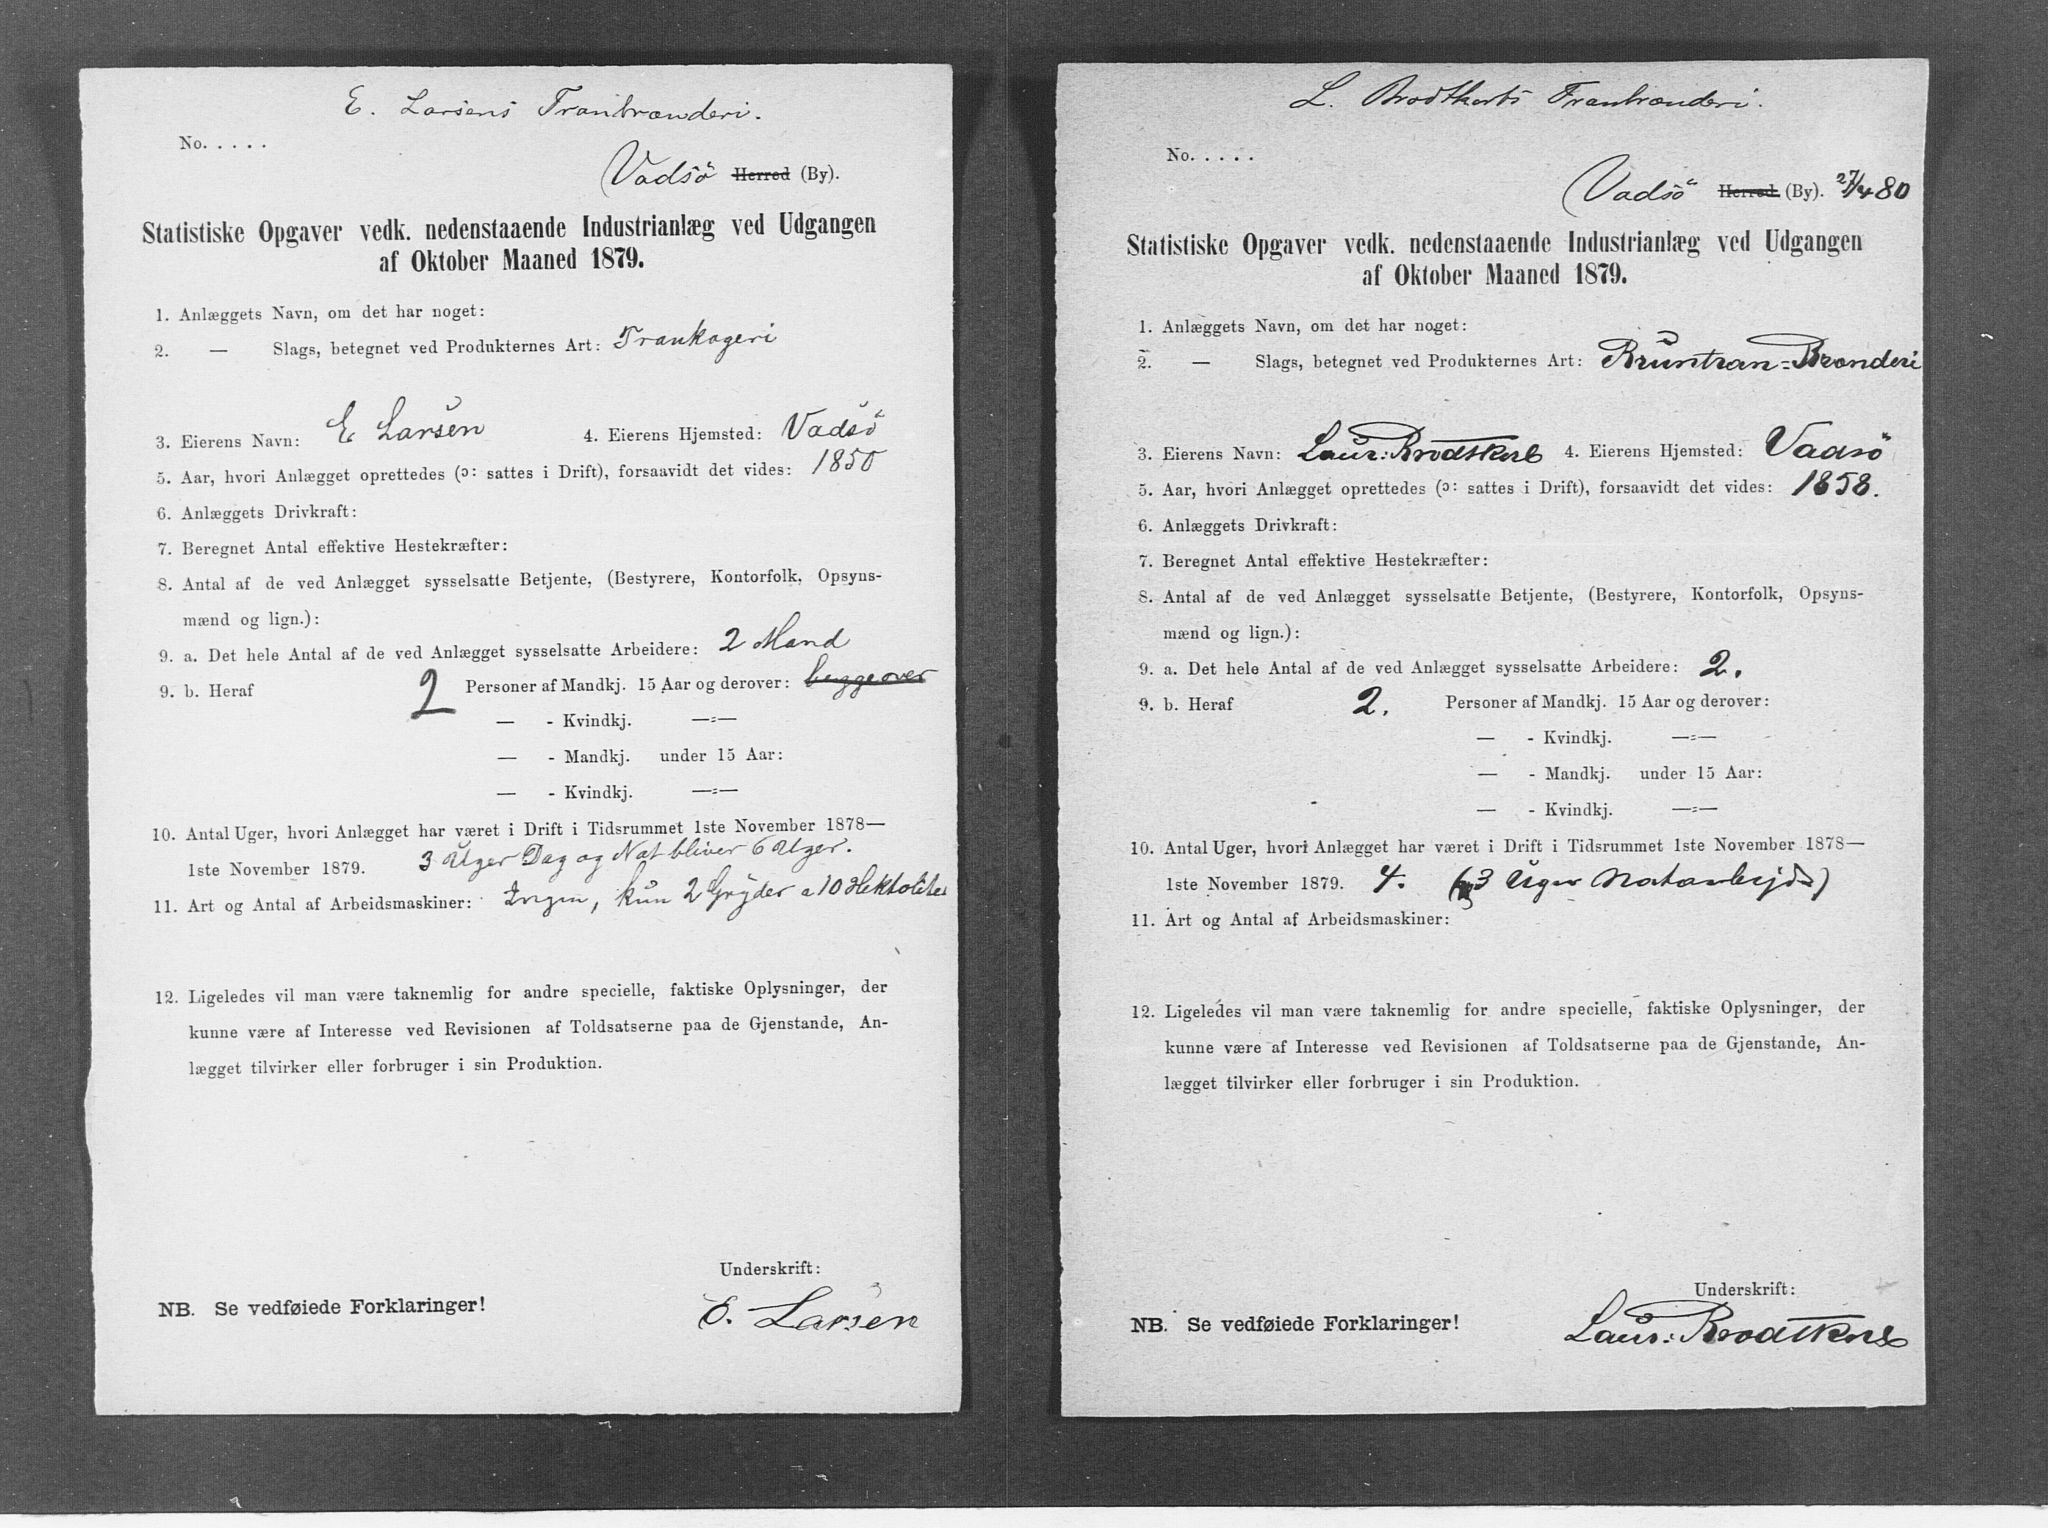 E. Larsens Tranbrænderi.
No. . . . .
Vadsö Herred (By).
Statistiske Opgaver vedk. nedenstaaende Industrianlæg ved Udgangen
af Oktober Maaned 1879.
1. Anlæggets Navn, om det har noget:
2. — Slags, betegnet ved Produkternes Art: Trankogeri
3. Eierens Navn: E Larsen 4. Eierens Hjemsted: Vadsö
5. Aar, hvori Anlægget oprettedes (ɔ: sattes i Drift), forsaavidt det vides: 1850
6. Anlæggets Drivkraft:
7. Beregnet Antal effektive Hestekræfter:
8. Antal af de ved Anlægget sysselsatte Betjente, (Bestyrere, Kontorfolk, Opsyns-
mænd og lign.):
9. a. Det hele Antal af de ved Anlægget sysselsatte Arbeidere: 2 Mand
9. b. Heraf 2 Personer af Mandkj. 15 Aar og derover: begge over
— - Kvindkj. —:—
— - Mandkj. under 15 Aar:
— - Kvindkj. —:—
10. Antal Uger, hvori Anlægget har været i Drift i Tidsrummet 1ste November 1878—
1ste November 1879. 3 Uger Dag og Nat bliver 6 Uger.
11. Art og Antal af Arbeidsmaskiner: Ingen, kun 2 Gryder a 10 Hektoliter
12. Ligeledes vil man være taknemlig for andre specielle, faktiske Oplysninger, der
kunne være af Interesse ved Revisionen af Toldsatserne paa de Gjenstande, An-
lægget tilvirker eller forbruger i sin Produktion.
Underskrift:
NB. Se vedføiede Forklaringer!
E. Larsen
L. Brodtkorbs Tranbrænderi.
No. . . . .
Vadsö Herred (By). 80
Statistiske Opgaver vedk. nedenstaaende Industrianlæg ved Udgangen
af Oktober Maaned 1879.
1. Anlæggets Navn, om det har noget:
2. — Slags, betegnet ved Produkternes Art: Bruntran=Brænderi
3. Eierens Navn: Laur: Brodtkorb 4. Eierens Hjemsted: Vadsö
5. Aar, hvori Anlægget oprettedes (ɔ: sattes i Drift), forsaavidt det vides: 1858.
6. Anlæggets Drivkraft:
7. Beregnet Antal effektive Hestekræfter:
8. Antal af de ved Anlægget sysselsatte Betjente, (Bestyrere, Kontorfolk, Opsyns-
mænd og lign.):
9. a. Det hele Antal af de ved Anlægget sysselsatte Arbeidere: 2.
9. b. Heraf 2. Personer af Mandkj. 15 Aar og derover:
— - Kvindkj. —:—
— - Mandkj. under 15 Aar:
— - Kvindkj. —:—
10. Antal Uger, hvori Anlægget har været i Drift i Tidsrummet 1ste November 1878—
1ste November 1879. 4. (3 Uger Natarbejde)
11. Art og Antal af Arbeidsmaskiner:
12. Ligeledes vil man være taknemlig for andre specielle, faktiske Oplysninger, der
kunne være af Interesse ved Revisionen af Toldsatserne paa de Gjenstande, An-
lægget tilvirker eller forbruger i sin Produktion.
Underskrift:
NB. Se vedføiede Forklaringer!
Laur: Brodtkorb